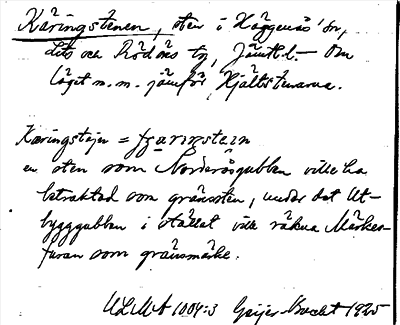 Käringstenen, sten i Häggenås' sn,
Lits och Rödöns tg, Jämtl. – Om
läget m.m. jämför Hjältstenarna.
Käringstajn =
en sten som Nordåsgubben ville ha
betraktad som gränssten, medan det Ut-
bygggubben i stället ville räkna Märkes-
furan som gränsmärke.
ULMA 1004:3 Geijer-Bucht 1925